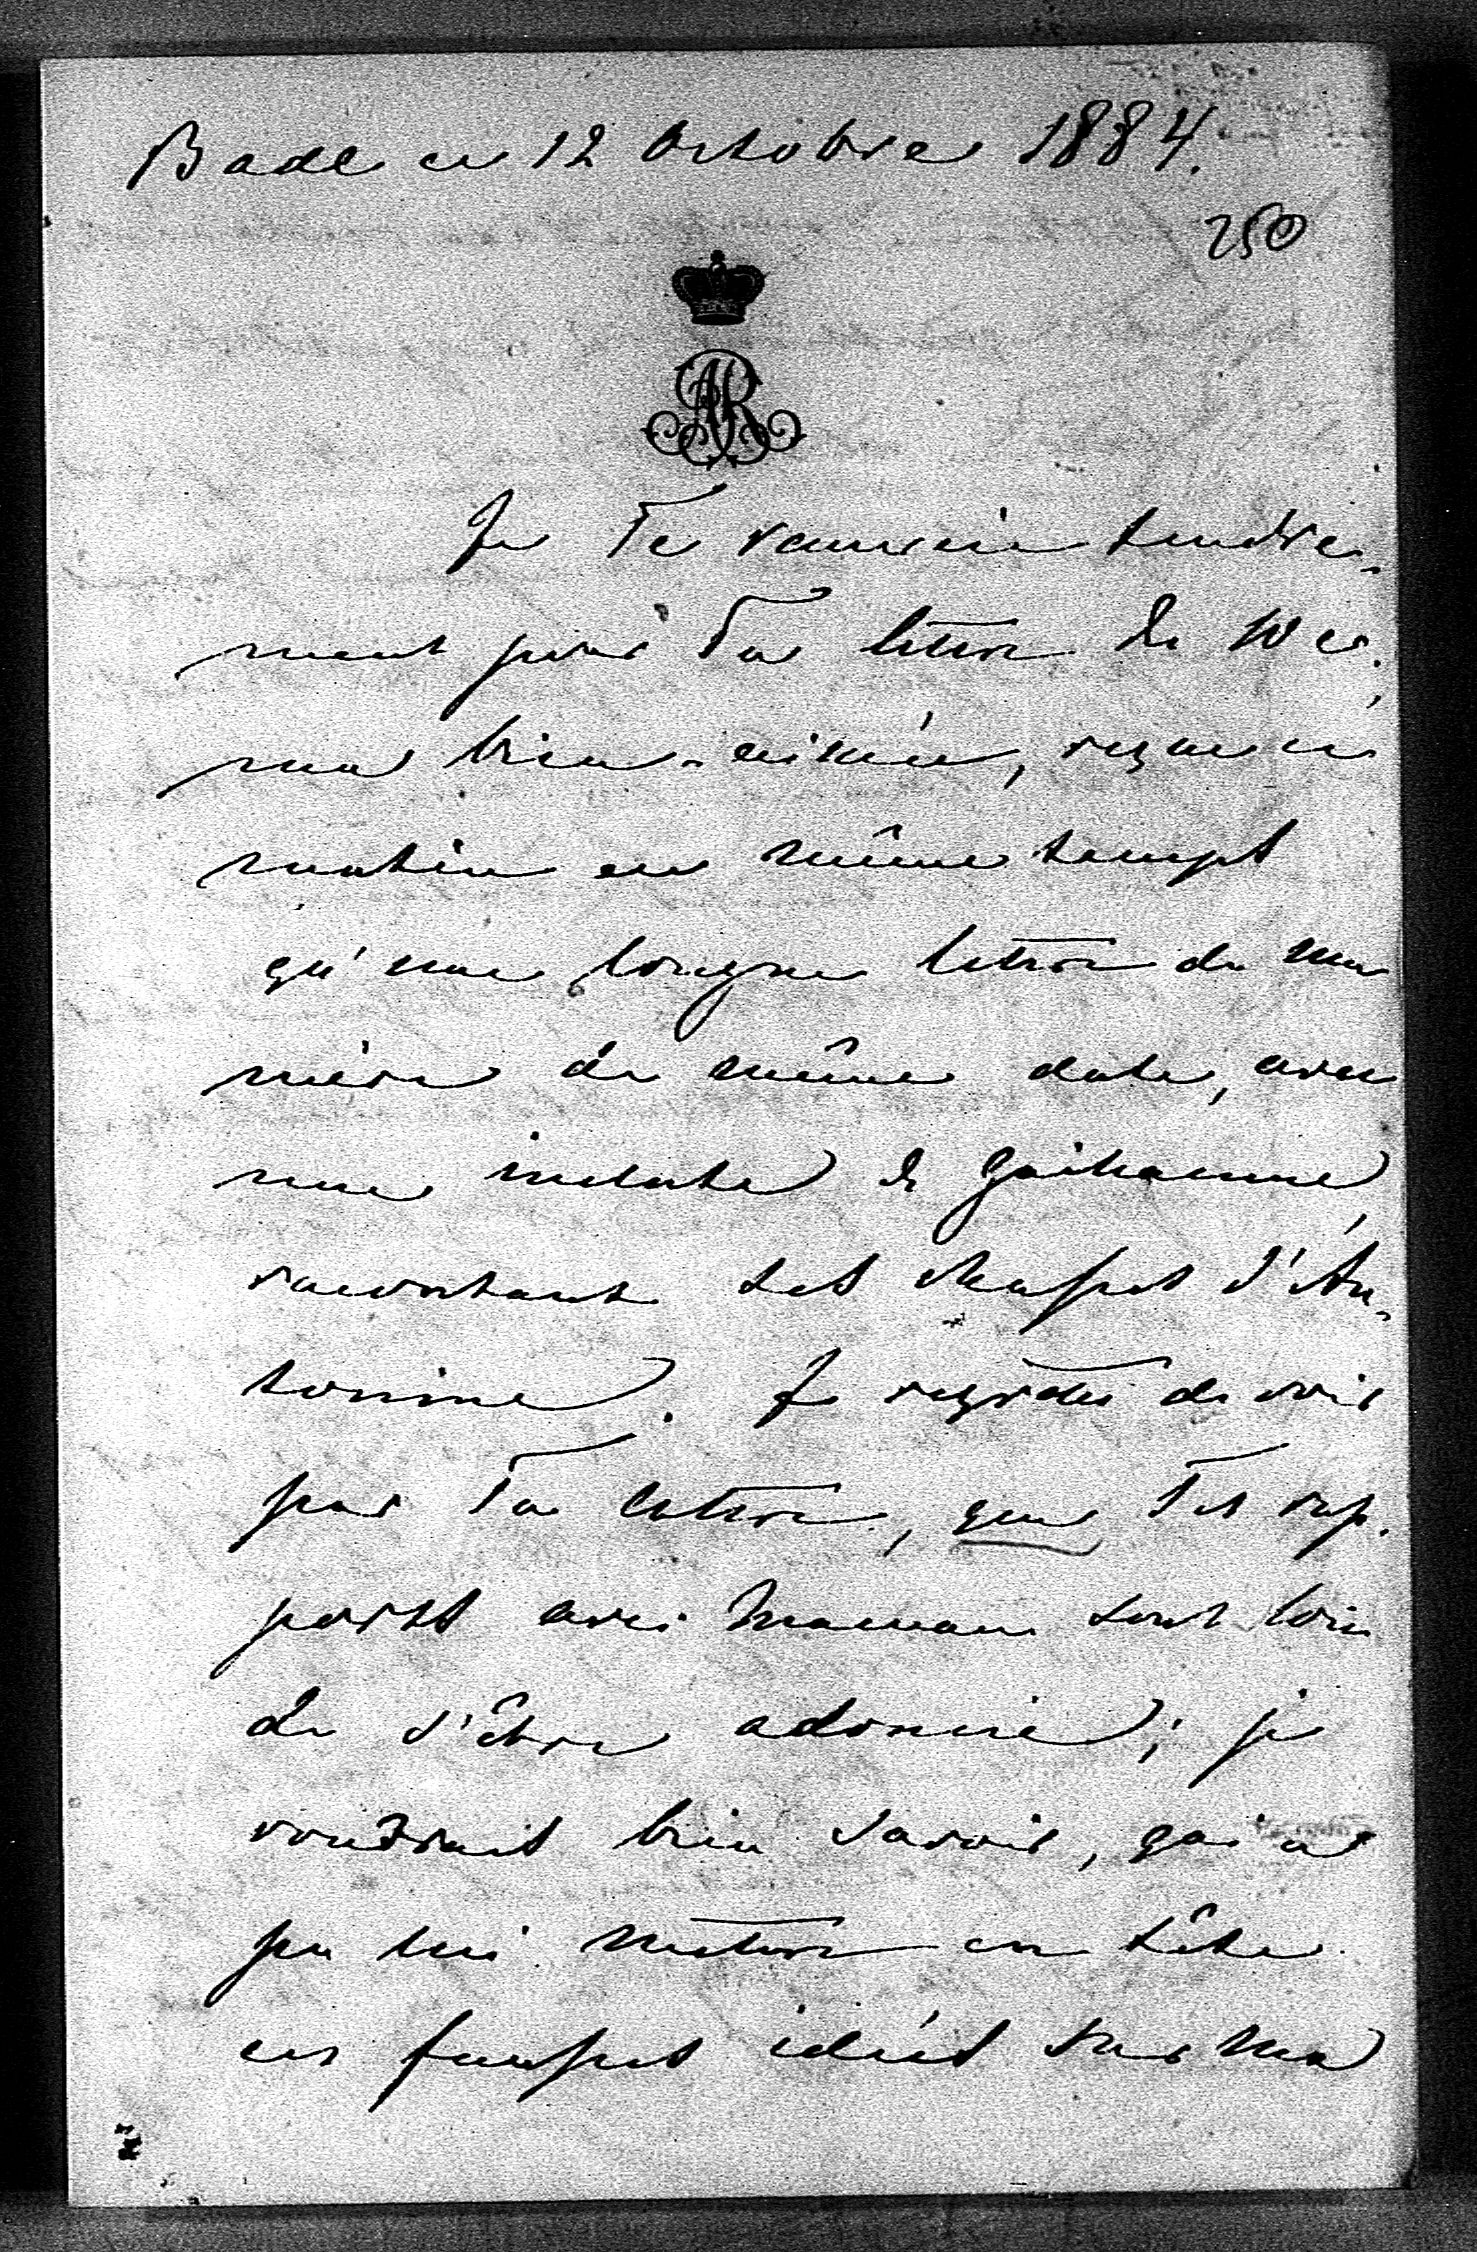 Bade ce 12 Octobre 1884.
250
AR
Je Te remercie tendre-
ment pour Ta lettre du 10 cr.,
ma bien-aimée, reçue ce
matin en même temps
qu'une longue lettre de ma
mère de même date, avec
une incluse de Guillaume,
racontant ses chasses d'An-
tonine. Je regrette de voir
par Ta lettre, que Tes rap-
ports avec Maman sont loin
de s'être adoucis; je
voudrais bien savoir, qui a
pu lui mettre en tête
ces fausses idées sur ma